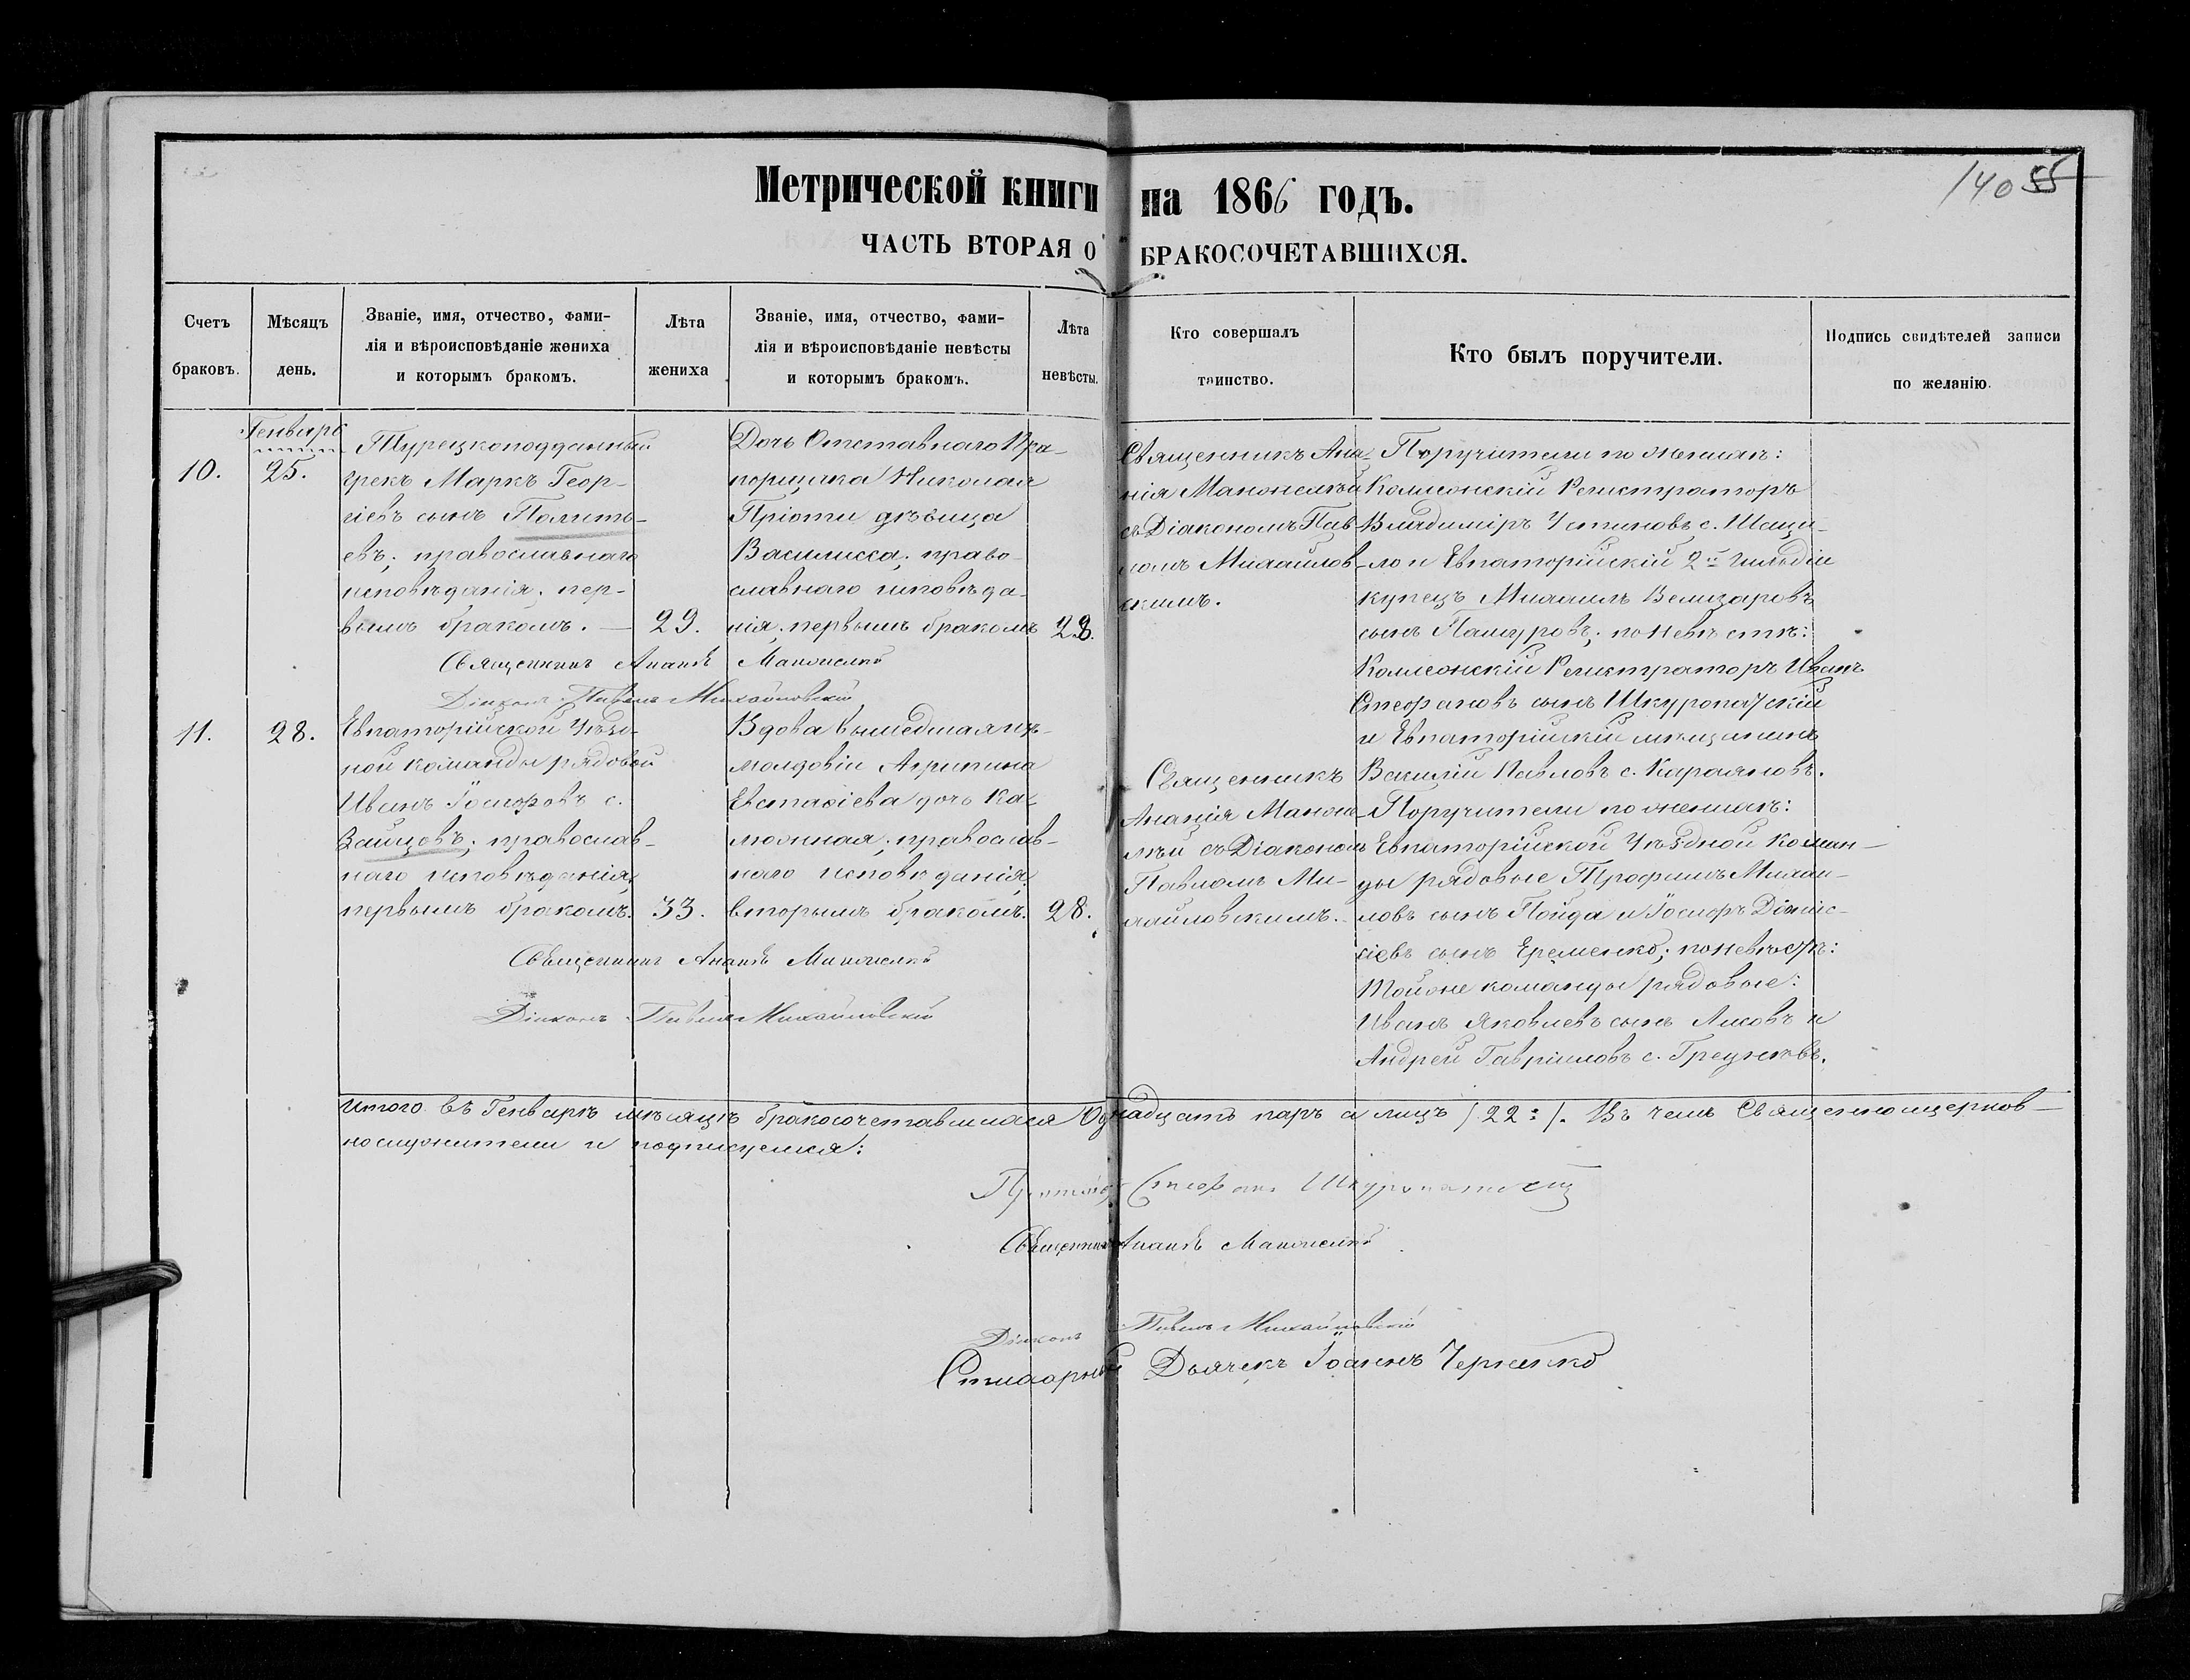 14055
Метрической книги на 1866 годъ.
ЧАСТЬ ВТОРАЯ О БРАКОСОЧЕТАВШИХСЯ.
Счетъ браковъ.
Мѣсяцъ день.
Званіе, имя, отчество, фами-
лія и вѣроисповѣданіе жениха
и которымъ бракомъ.
Лѣта жениха
Званіе, имя, отчество, фами-
лія и вѣроисповѣданіе невѣсты
и которымъ бракомъ.
Лѣта невѣсты.
Кто совершалъ
таинство.
Кто былъ поручители.
Подпись свидѣтелей записи
по желанію.
10.
Генваре
25.
Турецкоподданный
грекъ Маркъ Геор-
гіевъ сынъ
евъ; православнаго
исповѣданія, пер-
вымъ бракомъ. —
29.
Дочь Отставнаго Пра-
порщика Николая
Пріоти дѣвица
Василисса; право-
славнаго исповѣда-
нія, первымъ бракомъ
28.
Священникъ Ана-
нія
съ Діакономъ Пав-
ломъ Михайлов-
скимъ.
Поручители по женихѣ:
Коллежскій Регистраторъ
Владиміръ Устиновъ с. Шаци-
ло и Евпаторійскій 2й гильдіи
купецъ Михаилъ Велизаровъ
сынъ Пашуровъ; по невѣстѣ:
Коллежскій Регистраторъ Иванъ
Стефановъ сынъ Шкуропатскій
и Евпаторійскій мѣщанинъ
Василій Павловъ с. Караяновъ.
Священникъ Ананій
Діаконъ Павелъ Михайловскій
11.
28.
Евпаторійской Уѣзд-
ной команды рядовой
Иванъ Іосифовъ с.
Зайцовъ; православ-
наго исповѣданія,
первымъ бракомъ.
33.
Вдова вышедшая изъ
молдовіи Агрипина
Евстафіева дочь Ка-
люжная; православ-
наго исповѣданія,
вторымъ бракомъ.
28.
Священникъ
Ананія
съ Діакономъ
Павломъ Ми-
хайловскимъ.
Поручители по женихѣ:
Евпаторійской Уѣздной Коман-
ды рядовые Трофимъ Михаи-
ловъ сынъ Пойда и Іосифъ Діонис-
сіевъ сынъ Еременко; по невѣстѣ:
Той же команды рядовые:
Иванъ Яковлевъ сынъ Лисовъ и
Андрей Гавріиловъ с.
Священникъ Ананій
Діаконъ Павелъ Михайловскій
Итого въ Генварѣ мѣсяцѣ бракосочетавшихся Одинадцать паръ а лицъ /22:/. Въ чемъ Священноцерков-
нослужители и подписуемся:
Протоіер Стефанъ Шкуропатскій
Священникъ Ананій
Діаконъ Павелъ Михайловскій
Стихарный Дьячекъ Іоаннъ Черненко